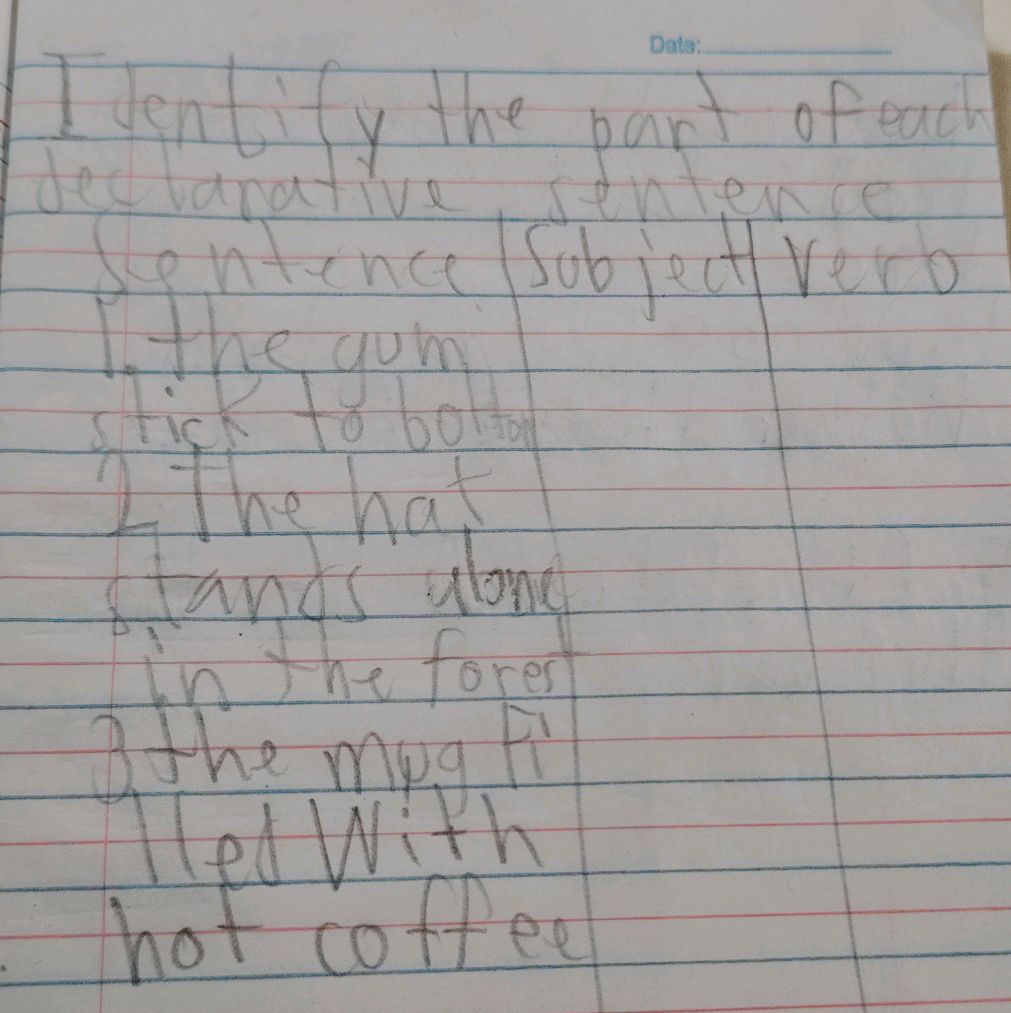 Date:
Identify the part of each
declarative sentence
Sentence Sobject verb
1. the gum
stick to botton
2 The hat
stands alone
in the forest
3 the mug fi
lled With
hot coffee